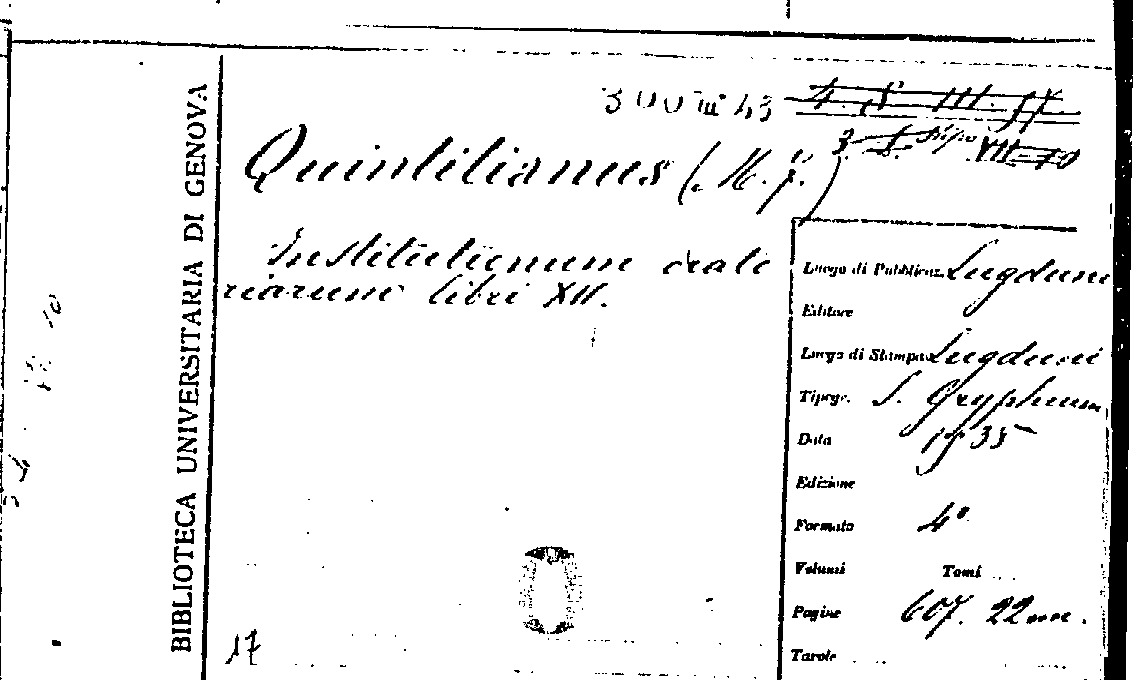 BIBLIOTECA UNIVERSITARIA DI GENOVA
Quintilianus (M. F.)
Institutionum orato
riarum libri XII.
Luogo di Pubblicaz. Lugduni
Editore
Luogo di Stampa Lugduni
Tipogr. S. Gryphium
Data 1535
Edizione
Formato 4°
Volumi Tomi
Pagine 607. 22 nn.
Tavole
17